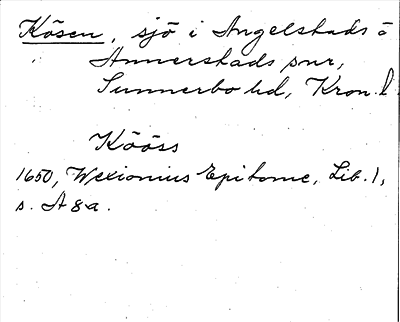 Kösen, sjö i Angelstads o
Annerstads snr,
Sunnerbo hd, Kron. l
Kööss
1650, Wexionius Epitome, Lib. 1,
s. A 8 a.